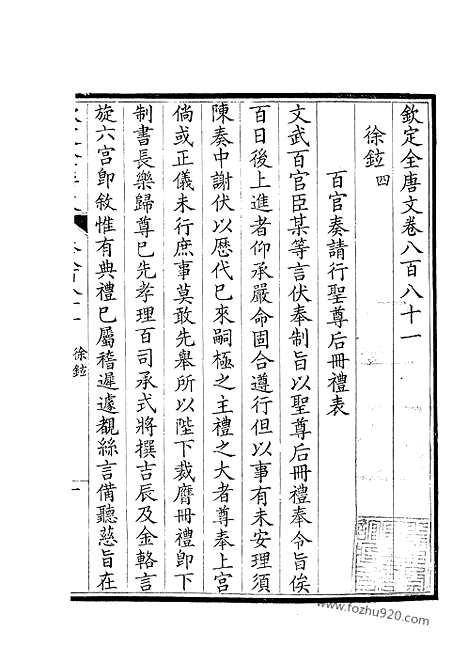 欽定全唐文卷八百八十一
徐鉉 四
百官奏請行聖尊后冊禮表
文武百官臣某等言伏奉制旨以聖尊后冊禮奉令旨俟
百日後上進者仰承嚴命固合遵行但以事有未安理須
陳奏中謝伏以歷代已來嗣極之主禮之大者尊奉上宮
倘或正儀未行庶事莫敢先舉所以陛下裁膺冊禮即下
制書長樂歸尊已先孝理百司承式將撰吉辰及金輅言
旋六宮即敘惟有典禮已屬稽遲遽覩絲言備聽慈旨在
徐鉉
一
www.fozhu920.com